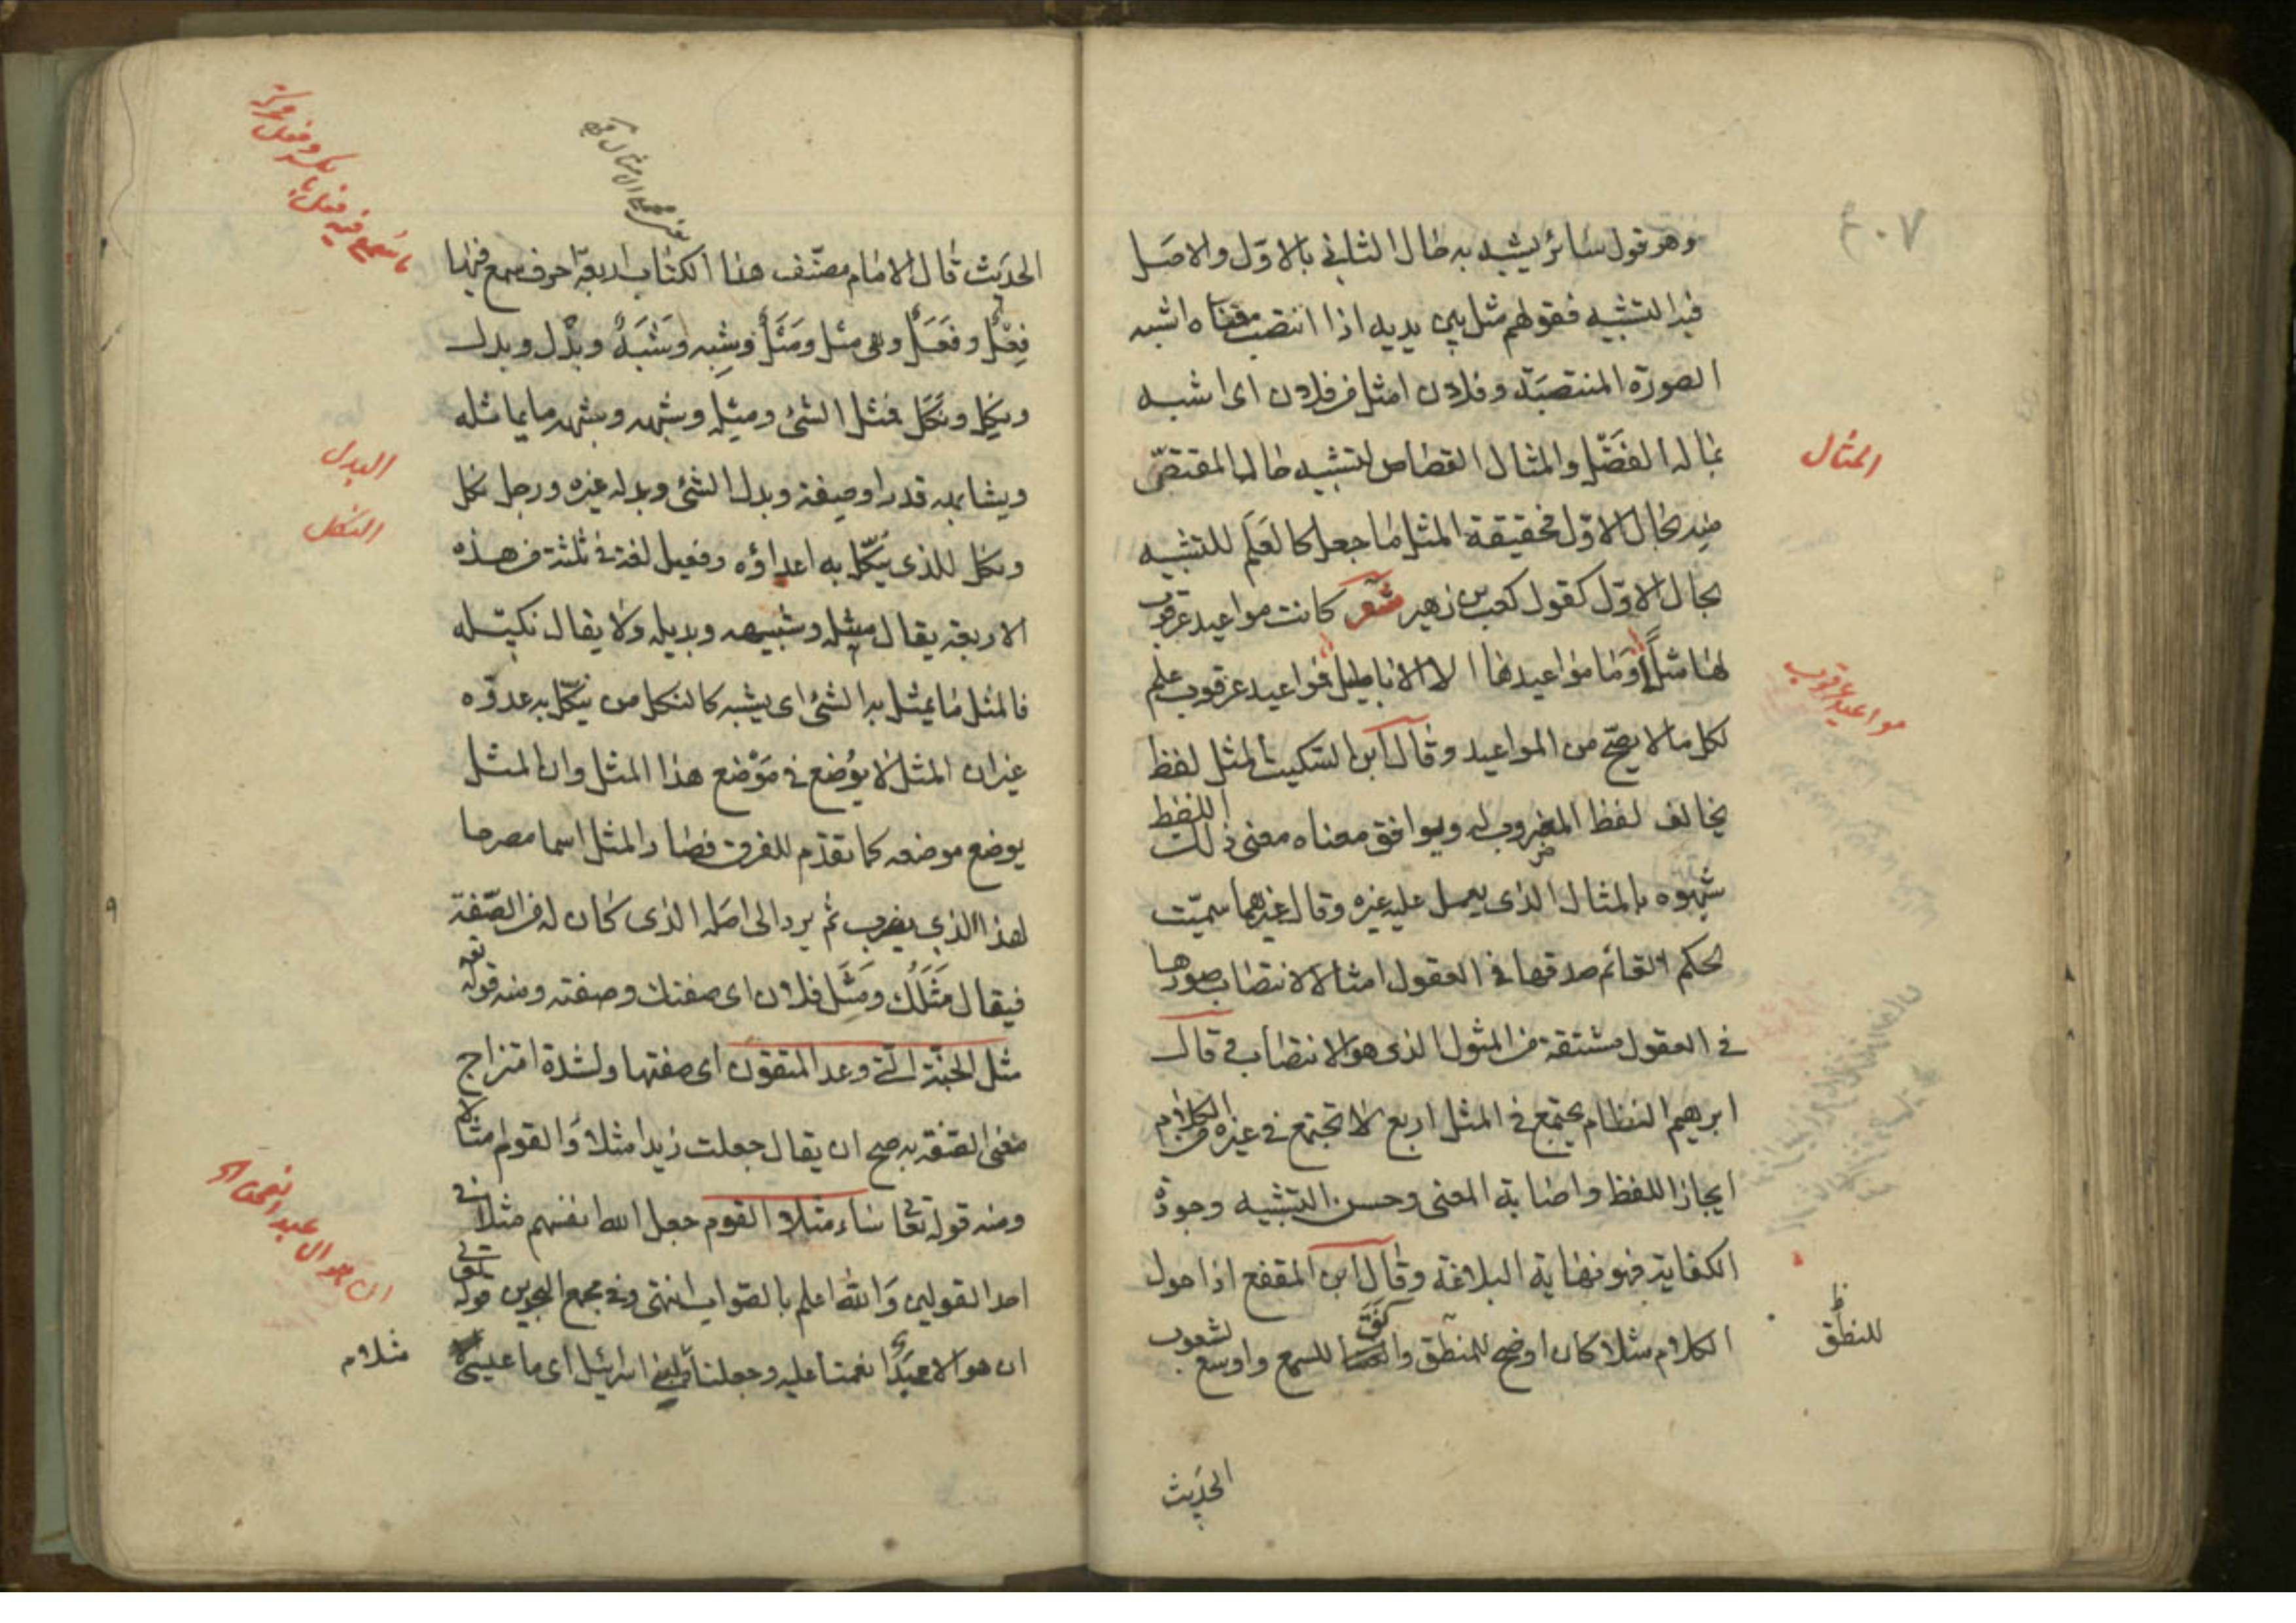 ٤٠٧
وهو قول سائر يشبه به حال الثاني بالاوّل والاصل
فيه التشبيه فقولهم مثل بين يديه اذا انتصب معناه اشبه
الصورة المنتصبة وفلان امثل من فلان اى اشبه
بماله الفضل والمثال القصاص لتشبيه حال المقتصّ
منه بحال الاوّل فحقيقة المثل ما جعل كالعَلَم للتشبيه
بحال الاوّل كقول كعب بن زهير شعر كانت مواعيد عرقوب
لها مثلاً وما مواعيدها الا الاباطيل فمواعيد عرقوب علم
لكل ما لا يصحّ من المواعيد وقال ابن السكيت المثل لفظ
يخالف لفظ المضروب له ويوافق معناه معنى ذلك اللفظ
شبهوه بالمثال الذى يعمل عليه غيره وقال غيرهما سميّت
الحكم القائم صدقها في العقول امثالا لانتصاب صورها
في العقول مشتقة من المثول الذى هو الانتصاب وقال
ابرهيم النظام يجتمع في المثل اربع لا تجتمع في غيره من الكلام
ايجاز اللفظ واصابة المعنى وحسن التشبيه وجودة
الكناية فهو نهاية البلاغة وقال ابن المقفع اذا جعل
الكلام مثلا كان اوضح للمنطق وآنق للسمع واوسع لشعوب
الحديث
المثال
مواعيد عرقوب
للنطق
الحديث قال الامام مصنّف هذا الكتاب اربعة احرف سمع فيها
فِعْلٌ وفَعَلٌ وهى مثل ومَثَلٌ وشِبه وشَبَهٌ وبِدْل وبدل
ونِكل ونَكَل فمثل الشئ ومثله وشبهه وشبهه ما يماثله
ويشابهه قدرا وصفة وبدل الشئ وبدله غيره ورجل نكل
ونكل للذى يُنكّل به اعداؤه وفعيل لغة في ثلثة من هذه
الاربعة يقال مثيله وشبيهه وبديله ولا يقال نكيله
فالمثل ما يمثل به الشئ اى يشبه كالنكل من ينكّل به عدوّه
غير ان المثل لا يوُضع في مَوْضع هذا المثل وان المثل
يوضع موضعه كما تقدّم للفرق فصار المثل اسما مصرحا
لهذا الذي يضرب ثم يرد الى اصله الذى كان له من الصّفة
فيقال مَثَلُكَ ومَثَل فلان اى صفتك وصفته ومنه قوله تعه
مثل الجنّة الّتي وعد المتقون اى صفتها ولشدة امتزاج
معنى الصّفة به صح ان يقال جعلت زيدا مثلا والقوم امثالا
ومنه قوله تعالى ساء مثلا القوم جعل الله انفسهم مثلا في
احد القولين والله اعلم بالصواب انتهى وفى مجمع البحرين قوله تعالى
ان هو الا عبدٌ انعمنا عليه وجعلناه لبني اسرائيل اى ما عيسى
ما سمع فيه فعل
البدل
النكل
ان هو الا عبد انعمنا
مثلا م